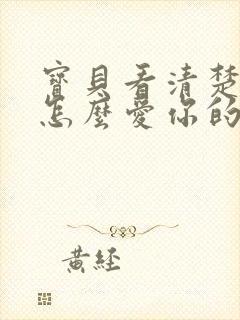 寶貝看清楚
怎麼愛你的
黃經